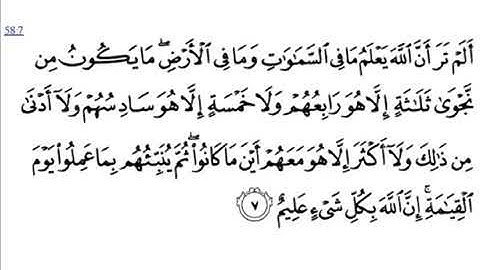 58:7
أَلَمْ تَرَ أَنَّ ٱللَّهَ يَعْلَمُ مَا فِى ٱلسَّمَٰوَٰتِ وَمَا فِى ٱلْأَرْضِ ۖ مَا يَكُونُ مِن
نَّجْوَىٰ ثَلَٰثَةٍ إِلَّا هُوَ رَابِعُهُمْ وَلَا خَمْسَةٍ إِلَّا هُوَ سَادِسُهُمْ وَلَآ أَدْنَىٰ
مِن ذَٰلِكَ وَلَآ أَكْثَرَ إِلَّا هُوَ مَعَهُمْ أَيْنَ مَا كَانُوا۟ ۖ ثُمَّ يُنَبِّئُهُم بِمَا عَمِلُوا۟ يَوْمَ
ٱلْقِيَٰمَةِ ۚ إِنَّ ٱللَّهَ بِكُلِّ شَىْءٍ عَلِيمٌ ٧